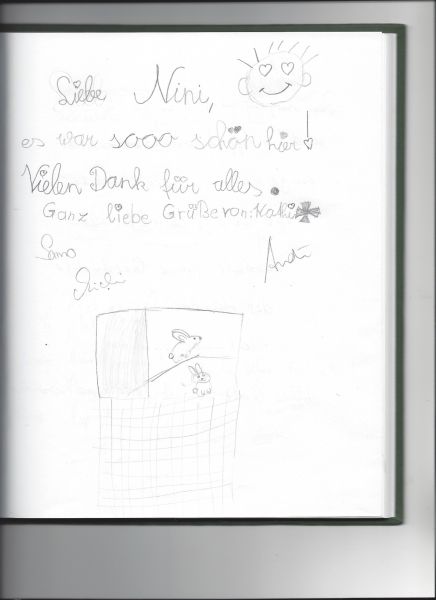 Liebe Nini,
es war sooo schön hier!
Vielen Dank für alles.
Ganz liebe Grüße von: Kathi
Samo
Michi